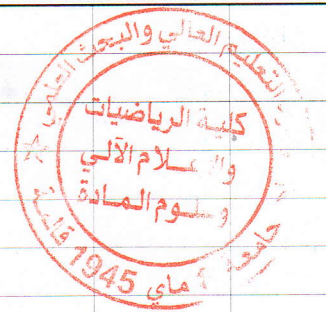 التعليم العالي والبحث العلمي
كلية الرياضيات
والإعلام الآلي
وعلوم المادة
جامعة 8 ماي 1945 قالمة